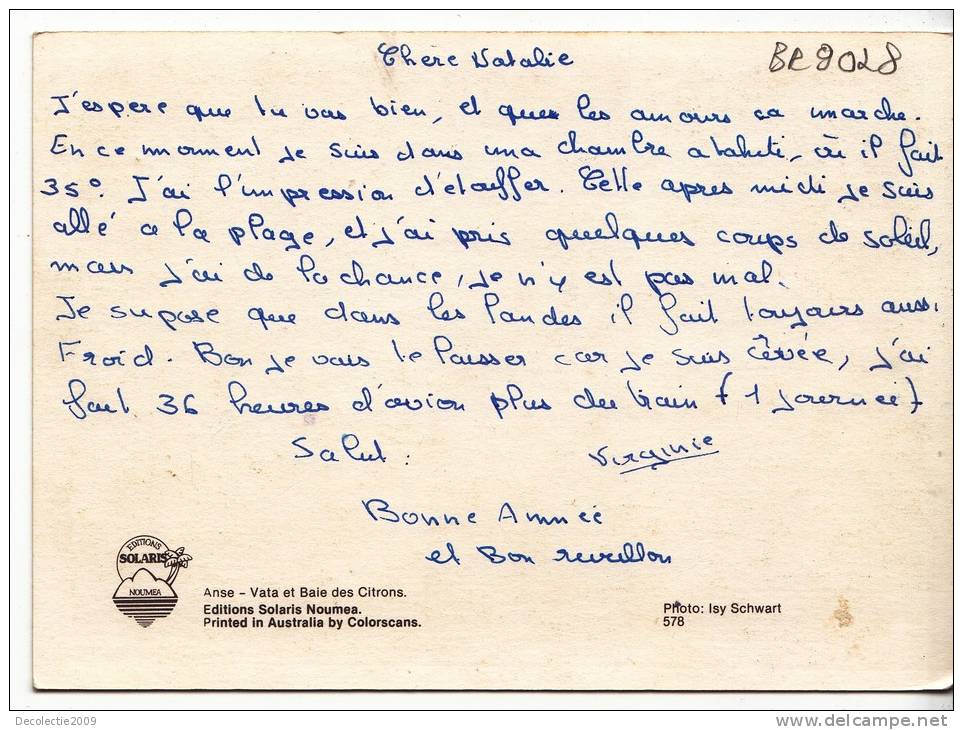 Chère Natalie
BR 9028
J'espere que tu vas bien, et que les amours ca marche.
En ce moment je suis dans una chambre a tahiti, où il fait
35°. J'ai l'impression d'etouffer. Cette apres midi je suis
allé a la plage, et j'ai pris quelques coups de soleil,
mais j'ai de la chance, je n'y est pas mal.
Je supose que dans les landes il fait toujours aussi
Froid. Bon je vais te laisser car je suis crevée, j'ai
fait 36 heures d'avion plus du train (1 journeé)
Salut.
Virginie
Bonne Anneé
et Bon reveillon
EDITIONS
SOLARIS
NOUMEA
Anse - Vata et Baie des Citrons.
Editions Solaris Noumea.
Printed in Australia by Colorscans.
Photo: Isy Schwart
578
Decolectie2009
www.delcampe.net